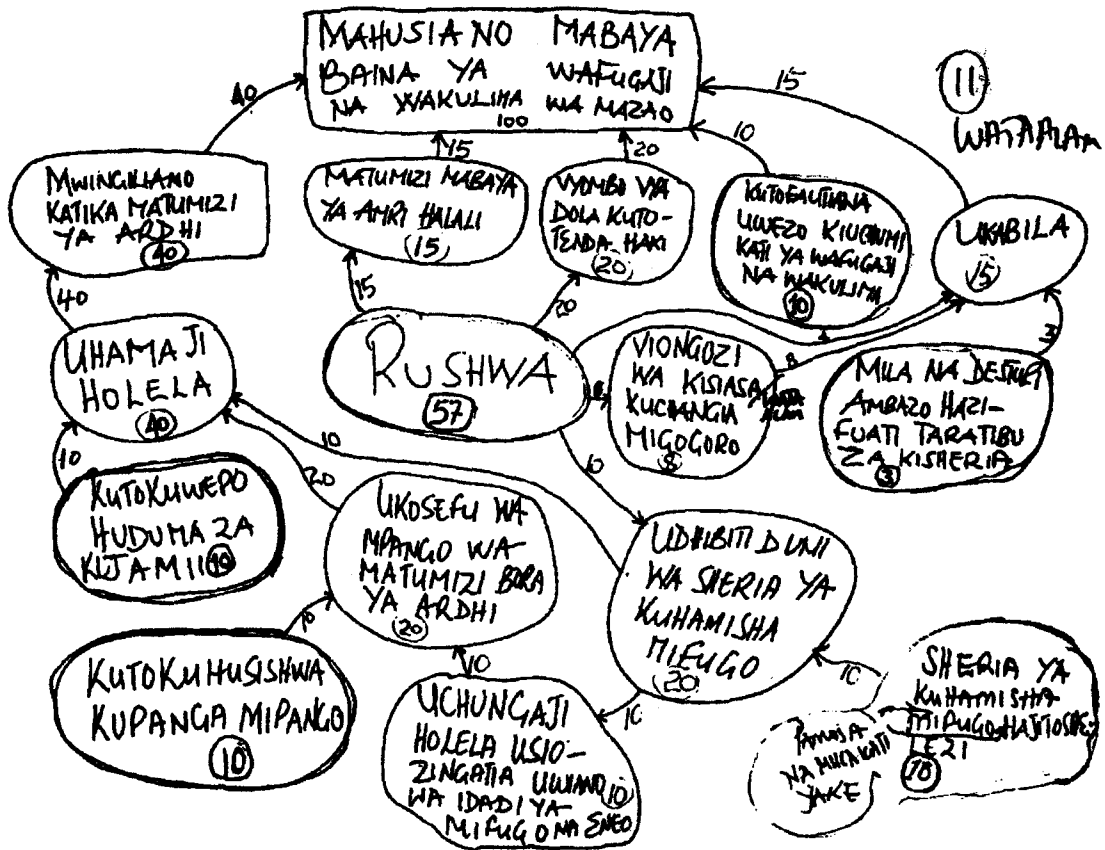 MAHUSIANO MABAYA
BAINA YA WAFUGAJI
NA WAKULIMA WA MAZAO
100
11
WATAALAM
40
15
20
10
15
MWINGILIANO
KATIKA MATUMIZI
YA ARDHI
40
MATUMIZI MABAYA
YA AMRI HALALI
15
VYOMBO VYA
DOLA KUTO-
TENDA-HAKI
20
KUTOFAUTIANA
UWEZO KIUCHUMI
KATI YA WAFUGAJI
NA WAKULIMA
10
UKABILA
15
40
15
20
4
8
3
UHAMAJI
HOLELA
40
RUSHWA
57
VIONGOZI
WA KISIASA
KUCHANGIA
MIGOGORO
8
MILA NA DESTURI
AMBAZO HAZI-
FUATI TARATIBU
ZA KISHERIA
3
10
20
10
10
KUTOKUWEPO
HUDUMA ZA
KIJAMII 10
UKOSEFU WA
MPANGO WA
MATUMIZI BORA
YA ARDHI
20
UDHIBITI DUNI
WA SHERIA YA
KUHAMISHA
MIFUGO
20
10
10
10
10
KUTOKUHUSISHWA
KUPANGA MIPANGO
10
UCHUNGAJI
HOLELA USIO-
ZINGATIA UWIANO 10
WA IDADI YA
MIFUGO NA ENEO
PAMOJA
NA MIKAKATI
YAKE
SHERIA YA
KUHAMISHA
MIFUGO HAJITOSHE-
LEZI
10